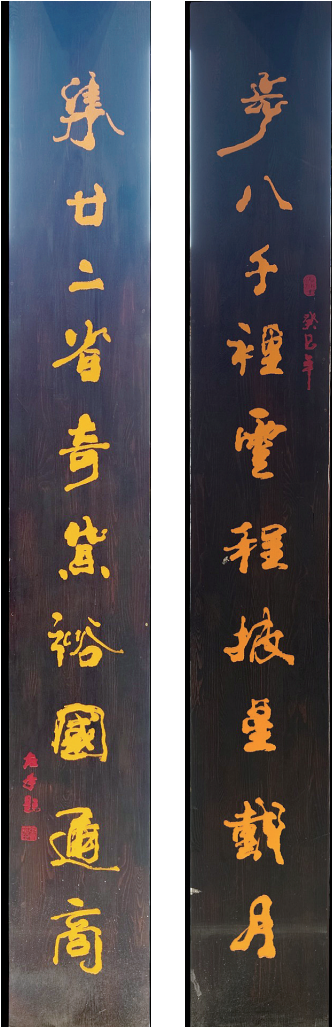 步八千裡雲程披星戴月
癸巳年
集廿二省奇貨裕國通商